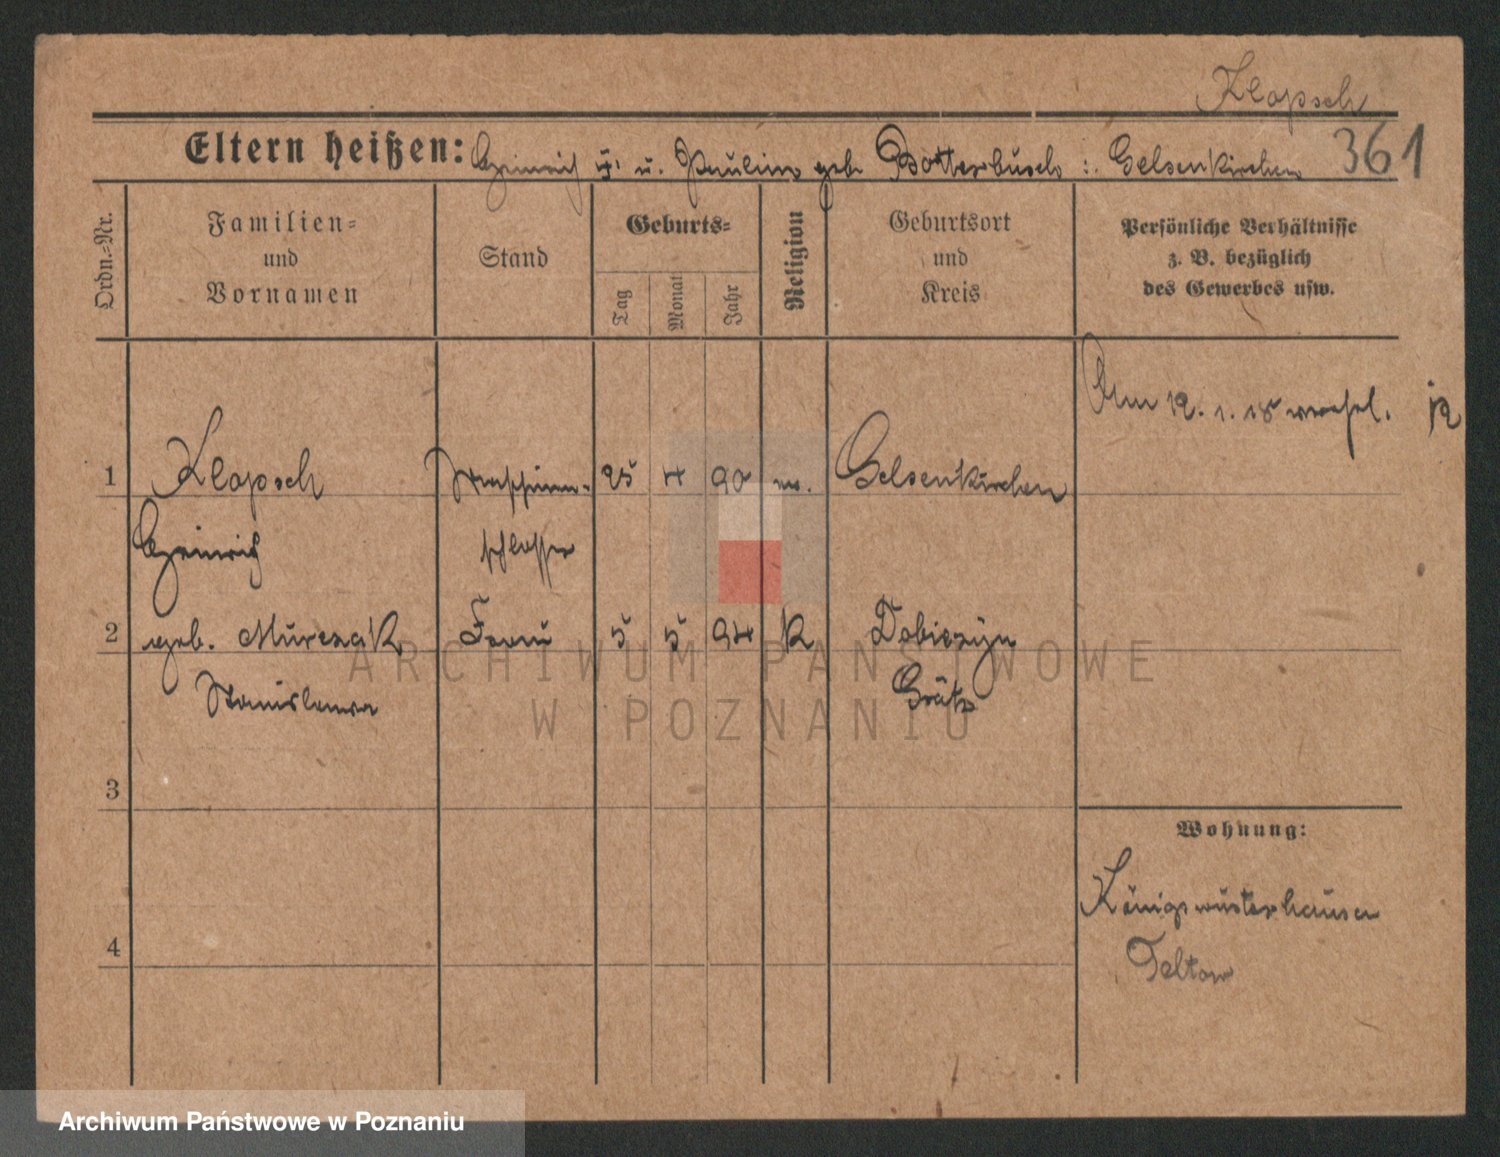 Klopsch
Eltern heißen: Heinrich u. Paulina geb. Botterbusch : Gelsenkirchen 361
Ordn.-Nr.
Familien-
und
Vornamen
Stand
Geburts-
Tag
Monat
Jahr
Religion
Geburtsort
und
Kreis
Persönliche Verhältnisse
z. B. bezüglich
des Gewerbes usw.
Am 12. 1. 18
1 Klopsch Maschinen- 25 4 90 ev. Gelsenkirchen
Heinrich schlosser
2 geb. Murczak Frau 5 5 94 K Dobiezyn
Stanislawa Grätz
3
4
Wohnung:
Königswusterhausen
Teltow
ARCHIWUM PAŃSTWOWE
W POZNANIU
Archiwum Państwowe w Poznaniu